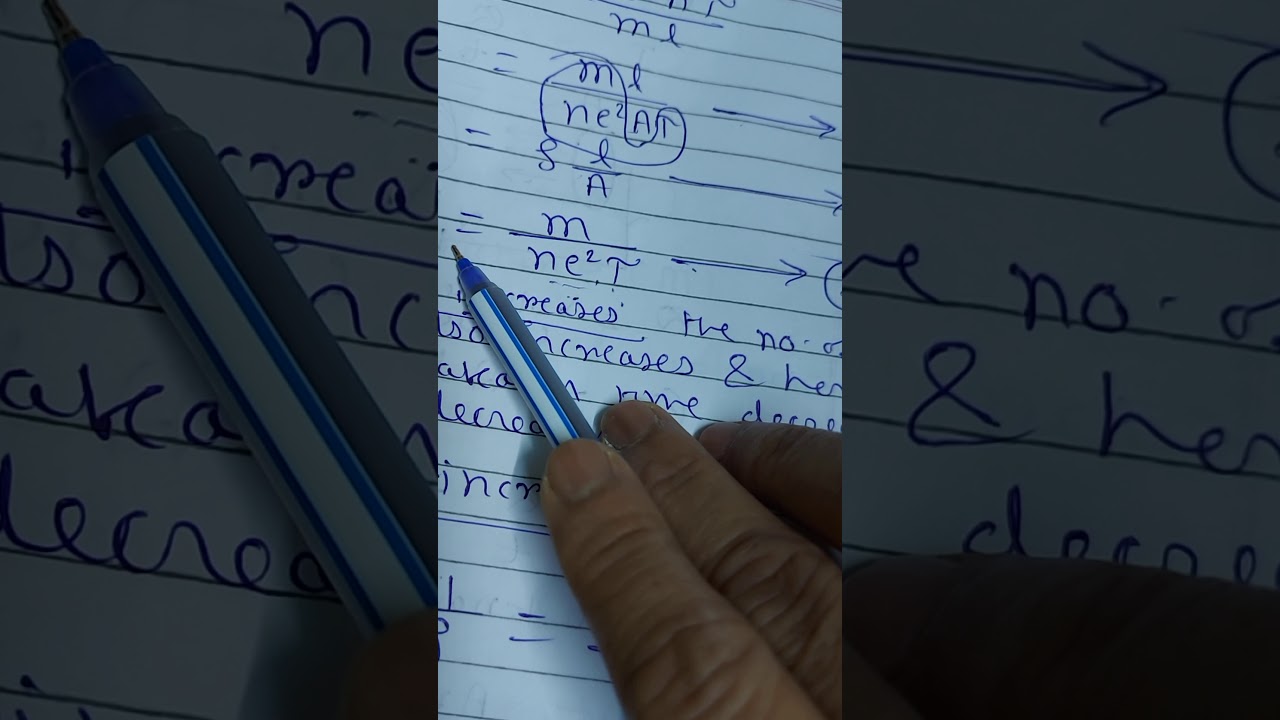 ml
= ml
ne²Aτ
= ρ l
A
= m
ne²τ
increases the no. o
lso increases & hen
taken time decre
decrea
incr
1
=